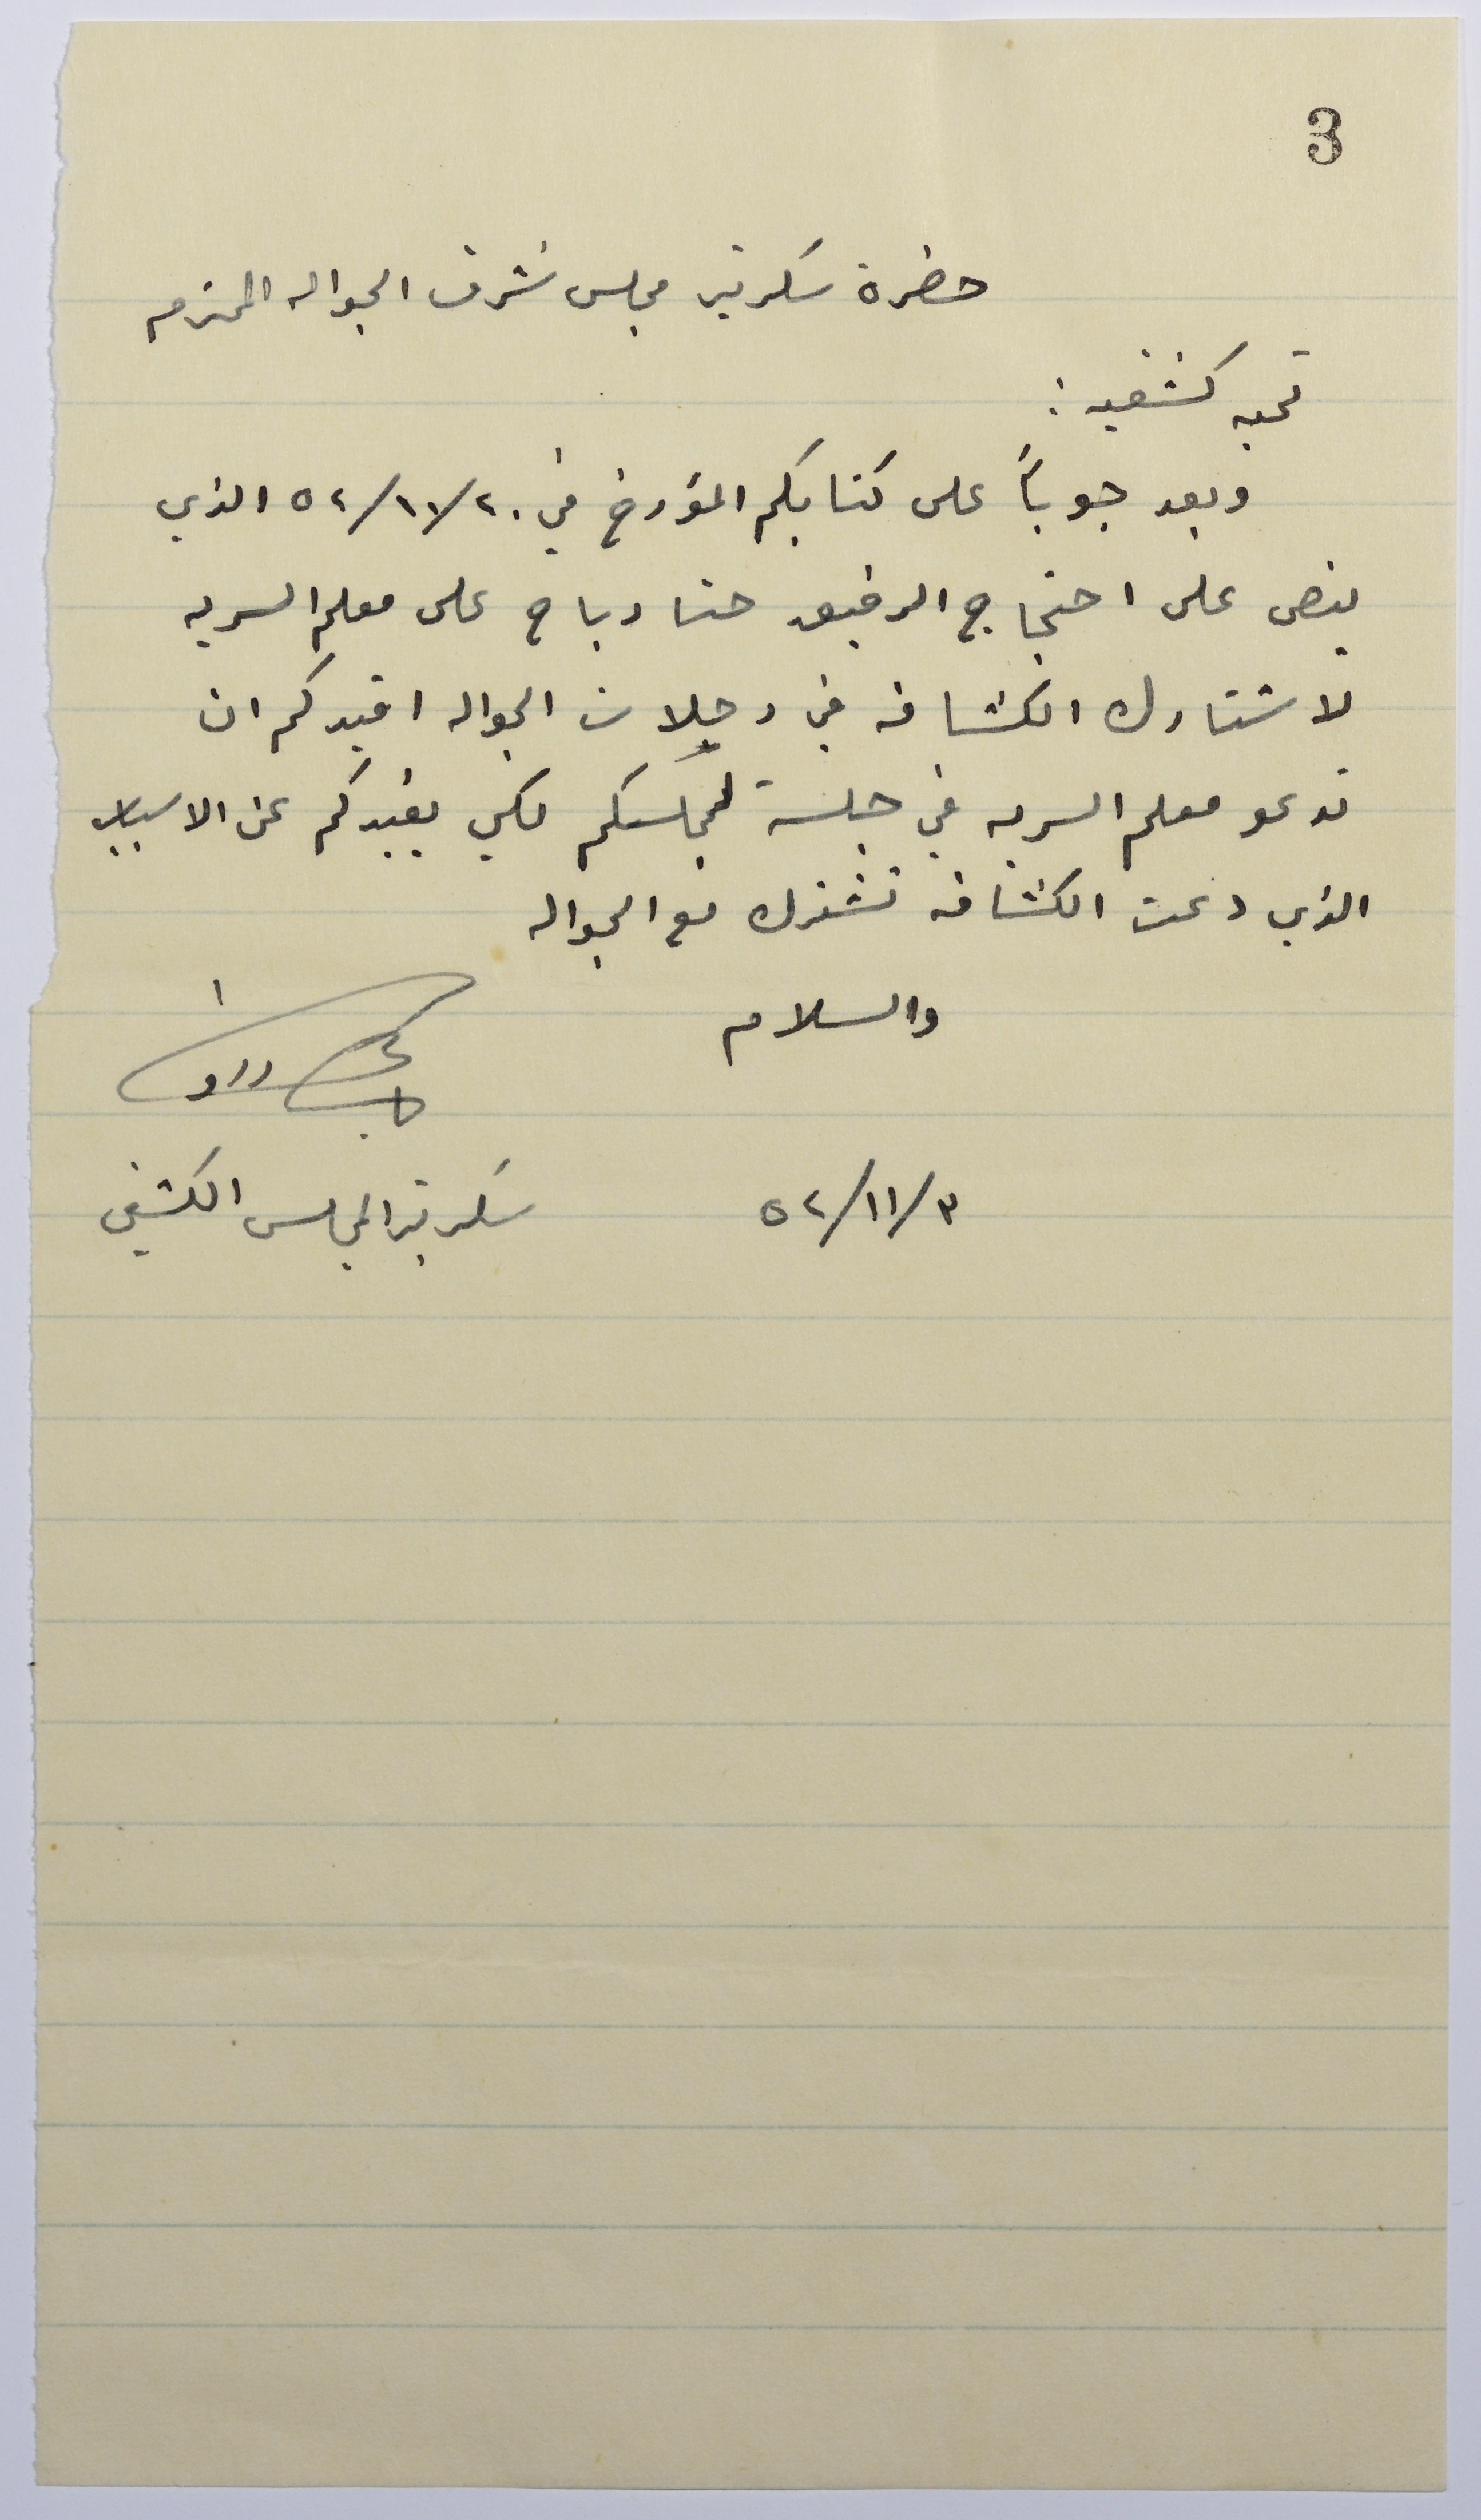 3
حضرة سكرتير مجلس شرف الجواله المحترم
تحيه كشفيه :
وبعد جوباً على كتابكم المؤرخ في ٢٠/١١/٥٢ الذي
ينص على احتجاج الرفيق حنا رباح على معلم السريه
لاشتراك الكشافه في رحلات الجواله افيدكم ان
تدعو معلم السريه في جلسة لمجلسكم لكي يفيدكم عن الاسباب
الذي دعت الكشافه تشترك مع الجواله
والسلام
٣/١١/٥٢
سكرتير المجلس الكشفي